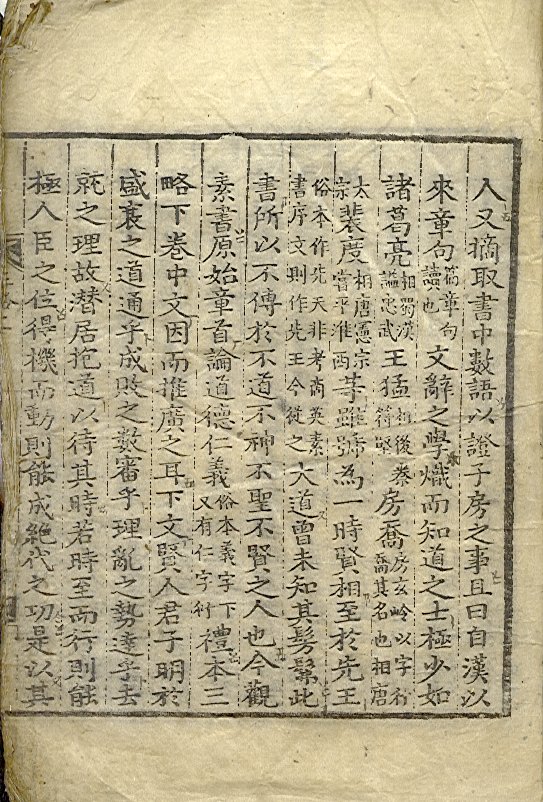 人又摘取書中數語以證子房之事且曰自漢以
來章句篇章句讀也文辭之學熾而知道之士極少如
諸葛亮相蜀漢謚忠武王猛相後秦符堅房喬房玄岭以字行喬其名也相唐
太宗裴度相唐憲宗嘗平淮西等雖號為一時賢相至於先王
俗本作先天非考商英素書序文則作先王今從之大道曾未知其髣髴此
書所以不傳於不道不神不聖不賢之人也今觀
素書原始章首論道德仁義俗本義字下又有仁字衍禮本三
略下卷中文因而推廣之耳下文賢人君子明於
盛衰之道通乎成敗之數審乎理亂之勢達乎去
就之理故潜居抱道以待其時若時至而行則能
極人臣之位得機而動則能成絶代之功是以其